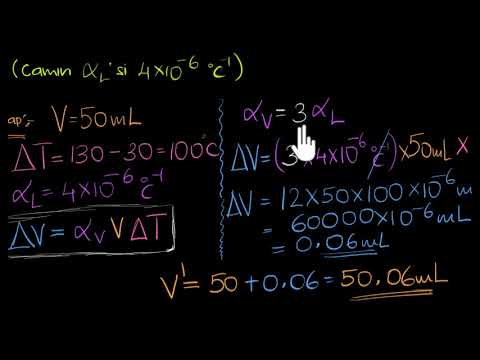 (Camın αL'si 4×10⁻⁶ °C⁻¹)
ap:  V=50mL
ΔT=130-30=100°C
αL=4×10⁻⁶ °C⁻¹
ΔV= αV V ΔT
αV=3αL
ΔV=(3×4×10⁻⁶ °C⁻¹)×50mL×
ΔV= 12×50×100×10⁻⁶m
= 60000×10⁻⁶mL
= 0.06mL
V'= 50+0.06=50.06mL